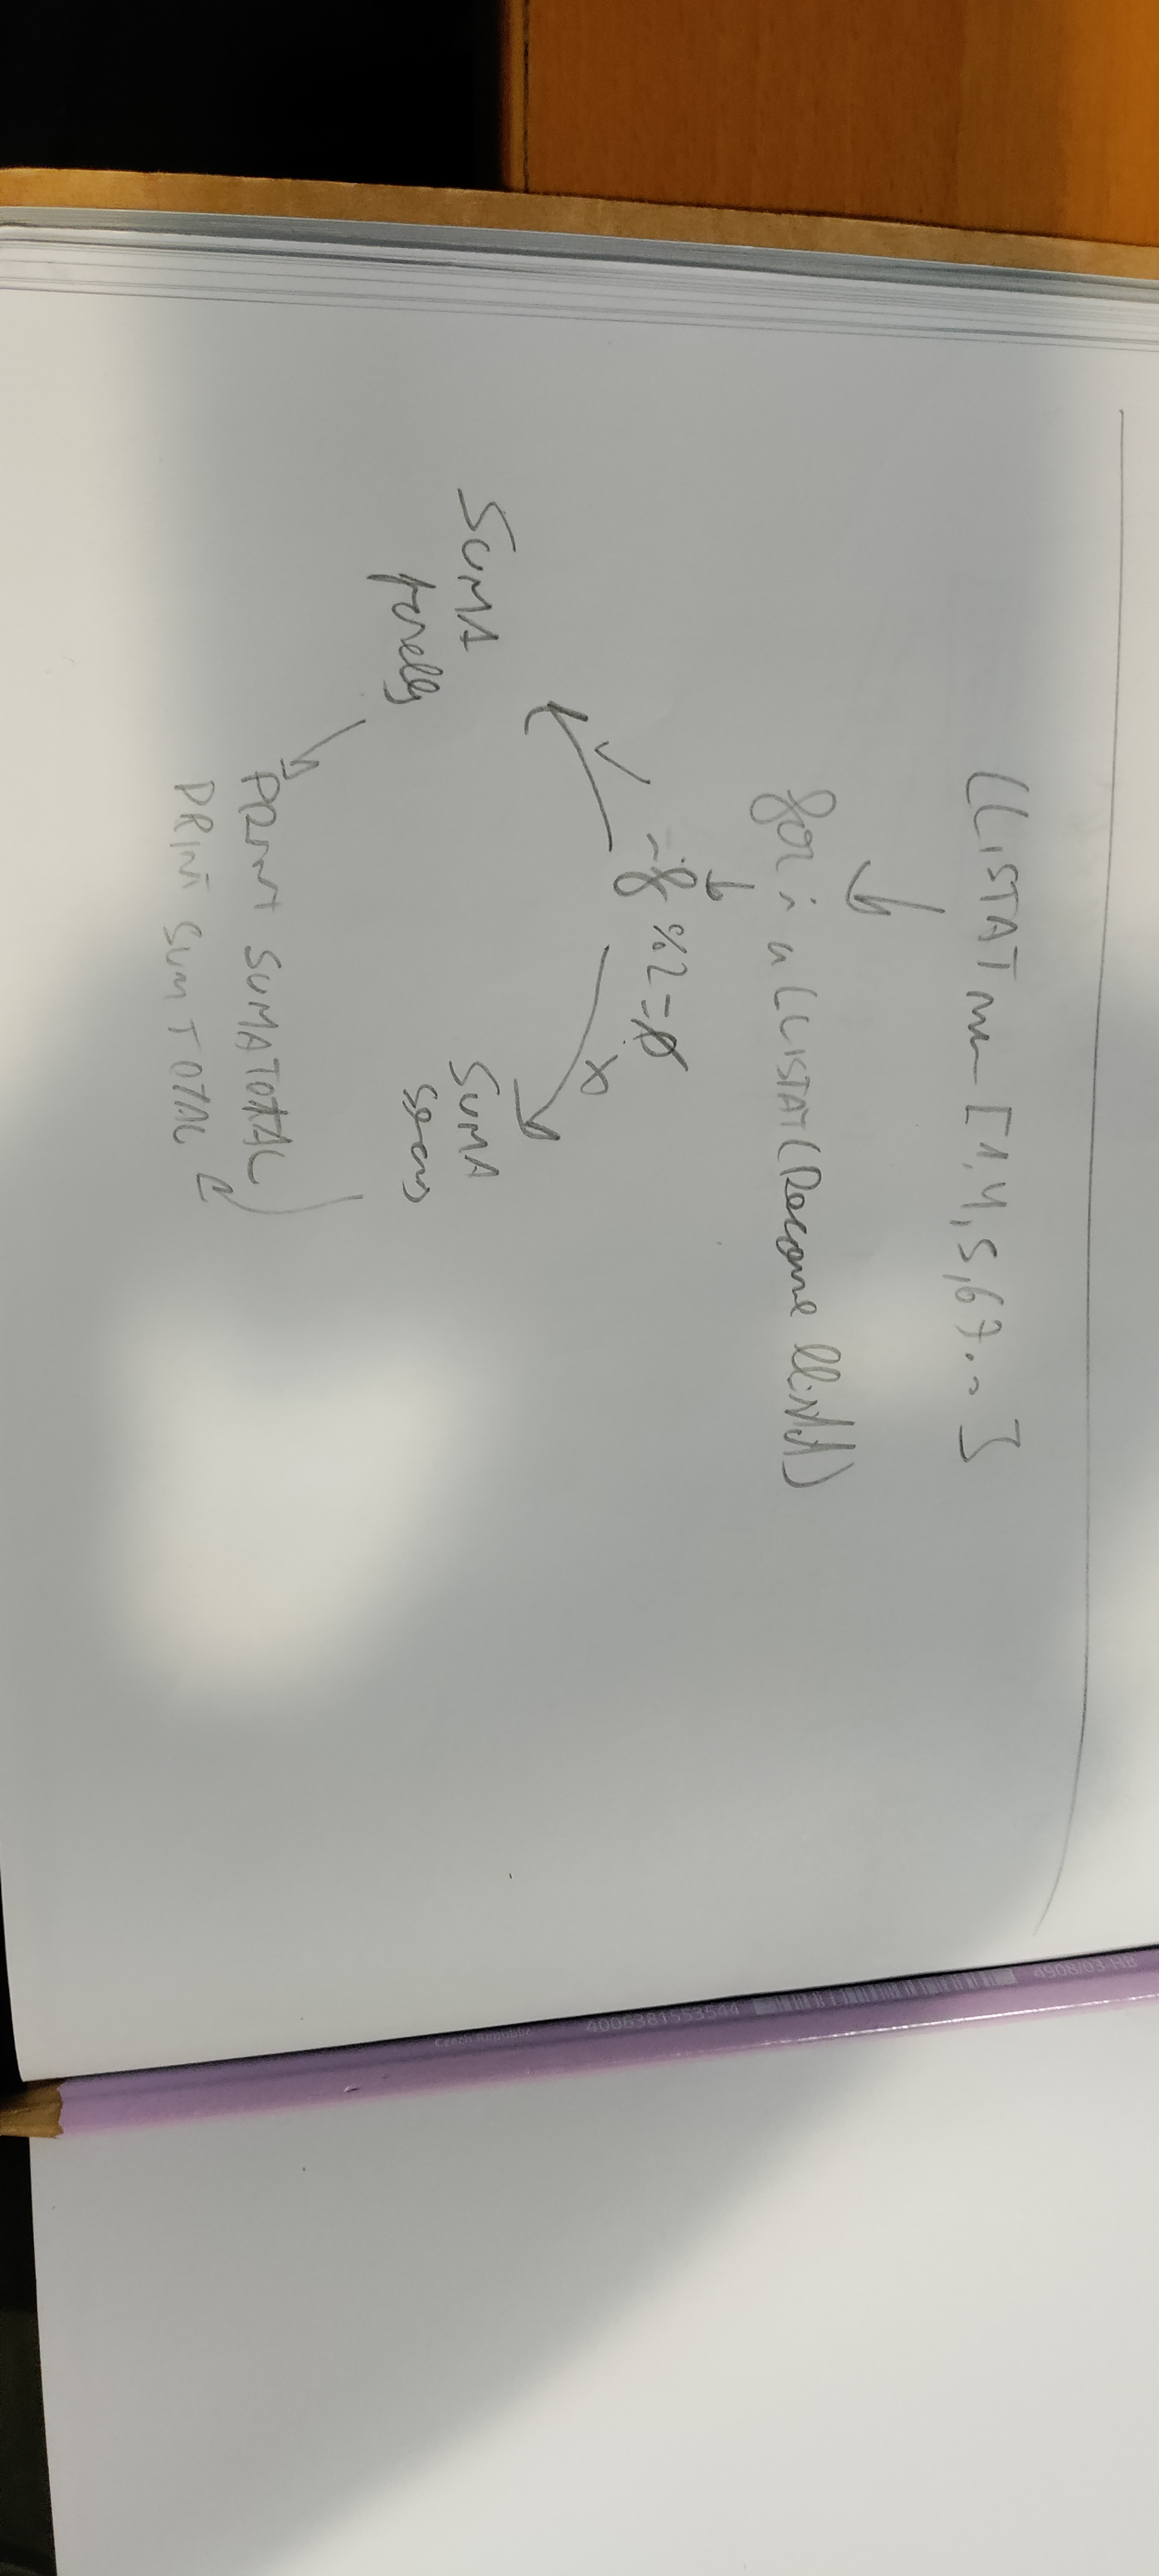 LLISTAT [1,4,5,6,7...]
for i in LLISTAT (Recorre llista)
if %2=0
SUMA
parells
SUMA
PRINT SUMA TOTAL
PRINT SUM TOTAL
4006381553544
4908/03 HB
Czech Republic